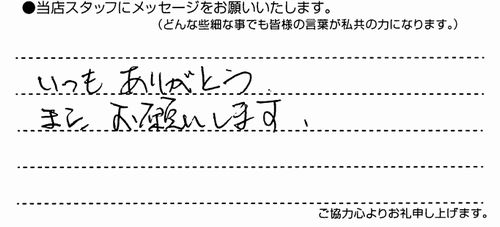 ●当店スタッフにメッセージをお願いいたします。
（どんな些細な事でも皆様の言葉が私共の力になります。）
いつも ありがとう
また、お願いします、
ご協力心よりお礼申し上げます。